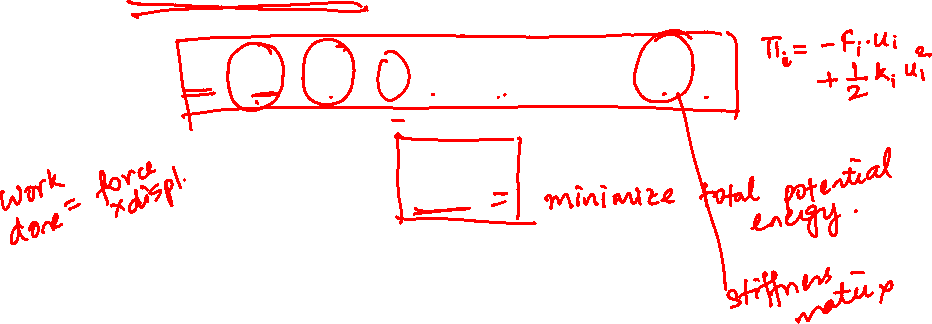 Πᵢ = - Fᵢ·uᵢ
+ 1/2 kᵢ uᵢ²
work done = force x displ.
minimize total potential energy.
stiffness matrix